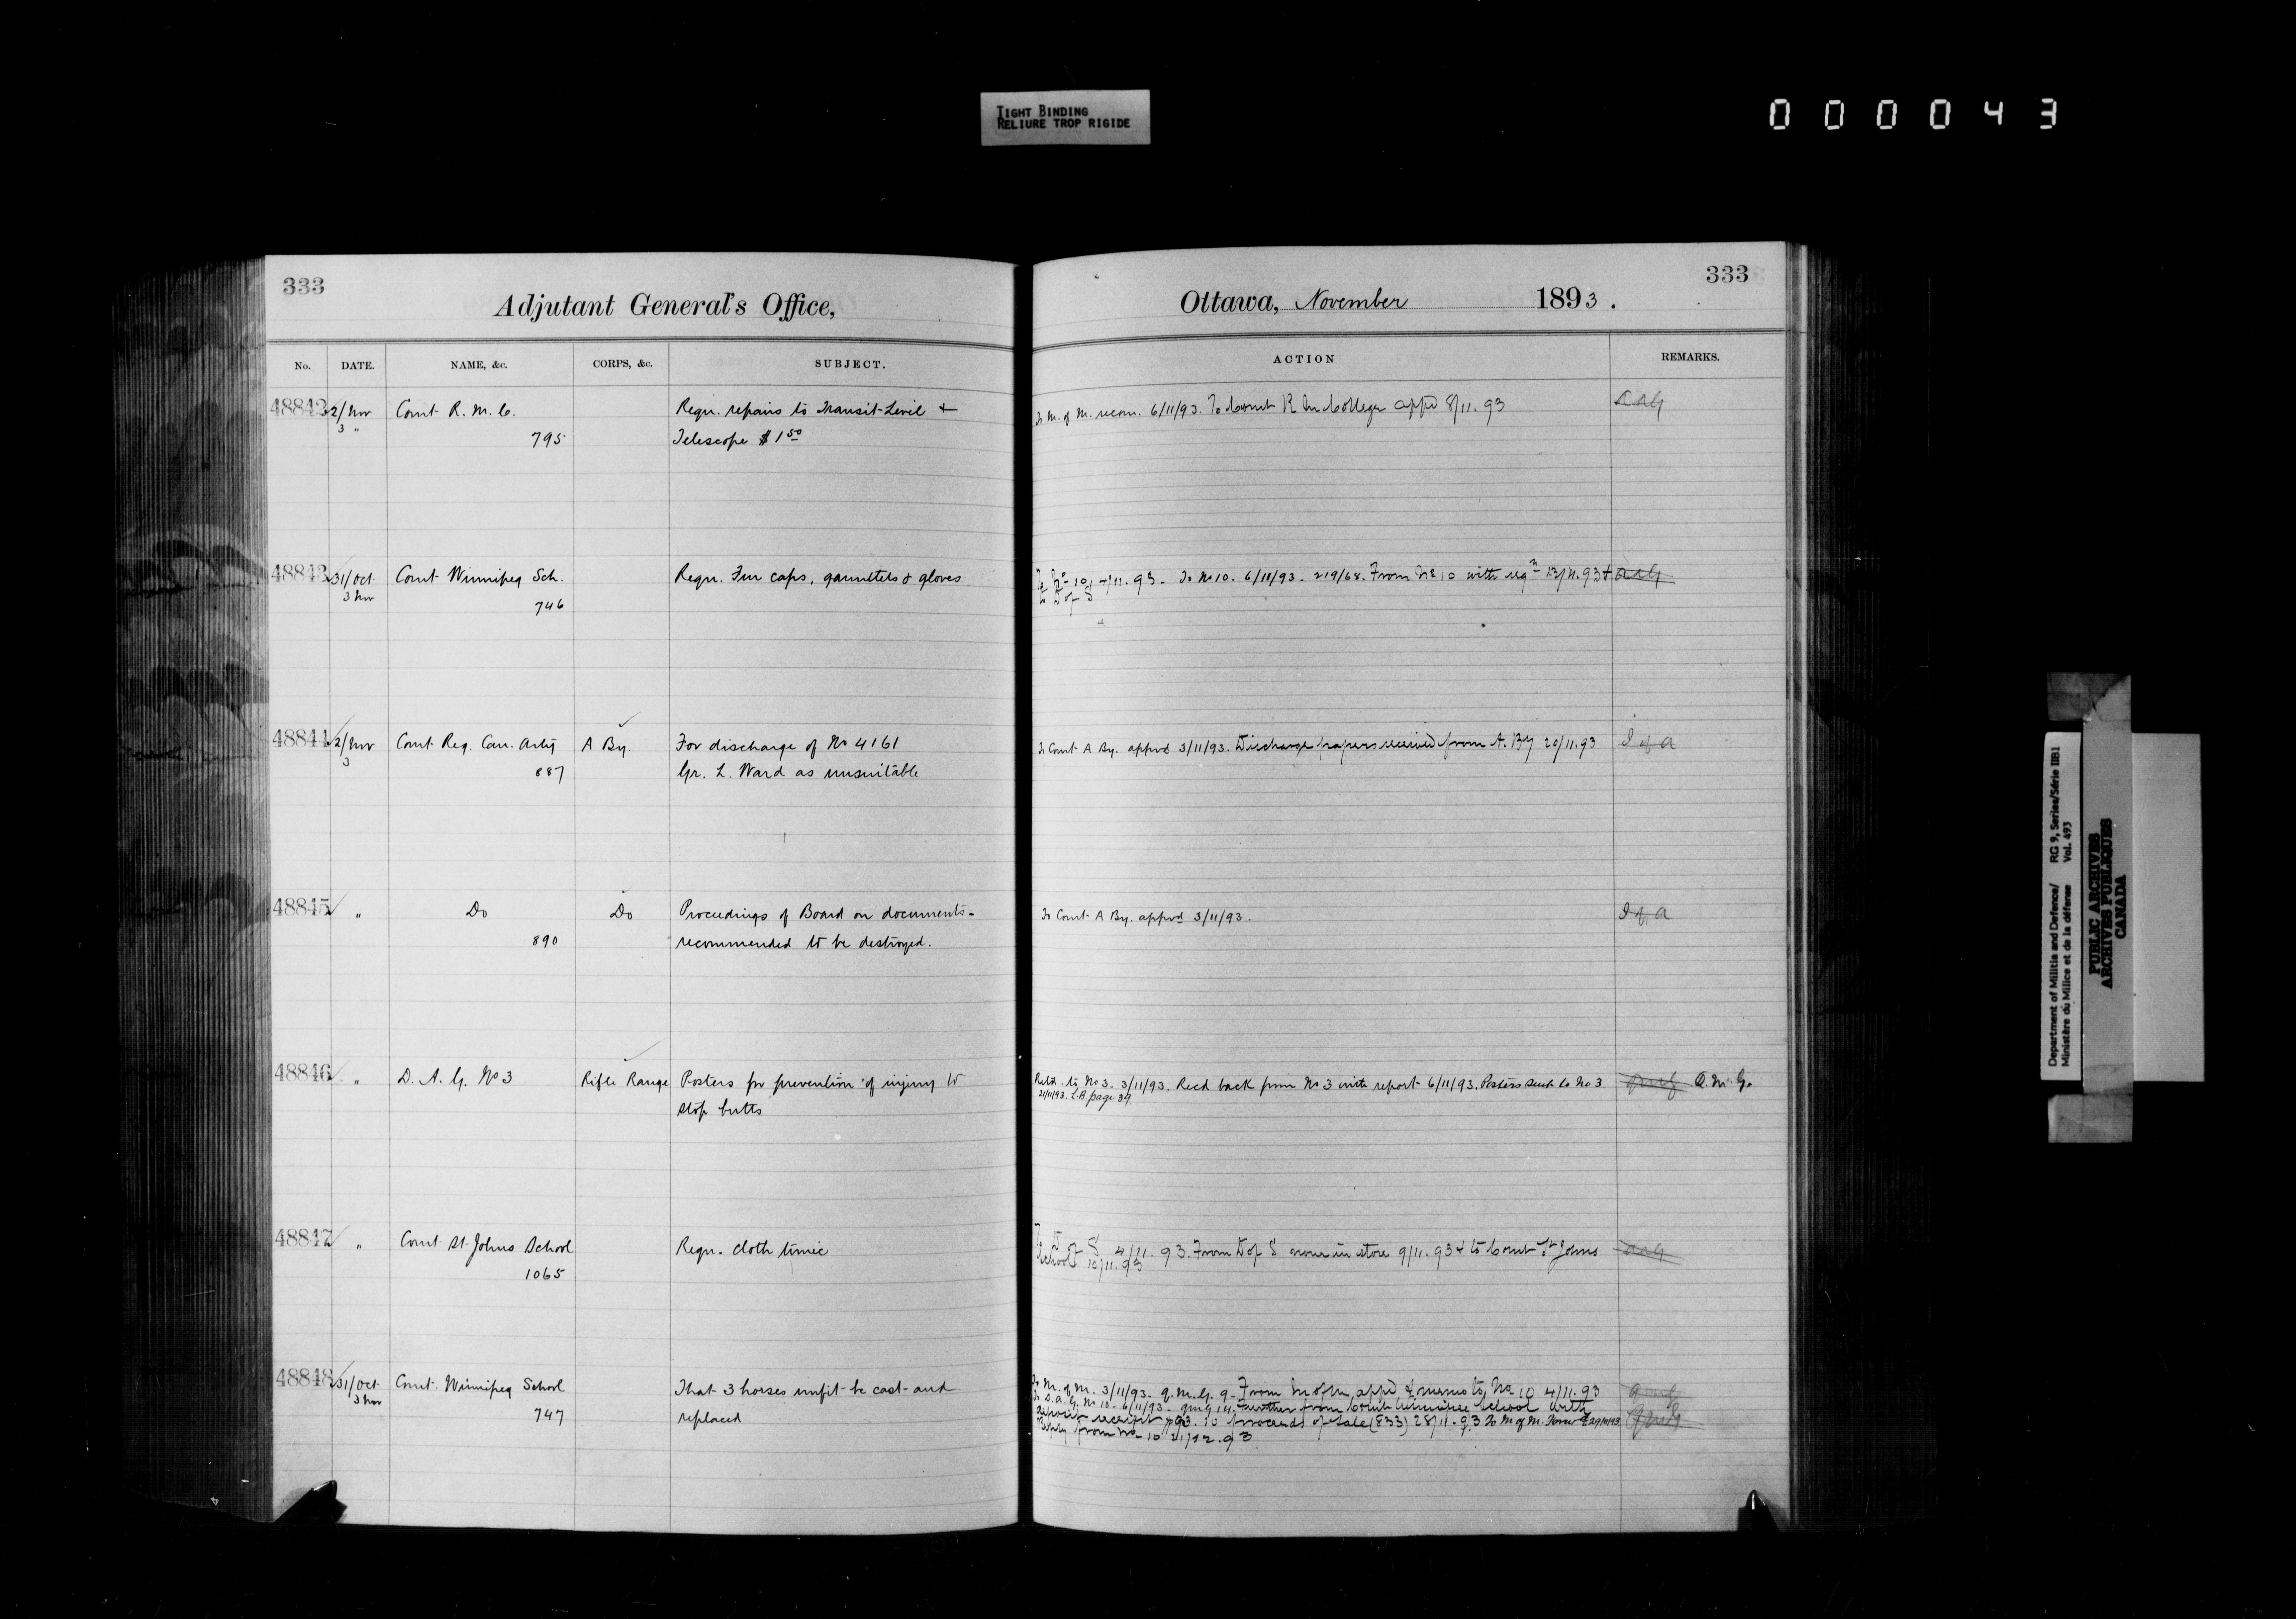 TIGHT BINDING
RELIURE TROP RIGIDE
000043
333
Adjutant General's Office,
No. DATE. NAME, &c. CORPS, &c. SUBJECT.
48842 2/Nov Comt R. M. C. Regn. repairs to Transit Level +
3 " 795 Telescope $1 50
48843 31/Oct Comt Winnipeg Sch. Regn. Fur caps, gauntlets & gloves
3 Nov 746
48844 2/Nov Comt Reg. Can. Arty A By. For discharge of No 4161
3 887 Gr. L. Ward as unsuitable
48845 " Do Do Proceedings of Board on documents-
890 recommended to be destroyed.
48846 " D. A. G. No 3 Rifle Range Posters for prevention of injury to
stop butts
48847 " Comt St Johns School Regn. cloth tunic
1065
48848 31/Oct Comt. Winnipeg School That 3 horses unfit be cast and
3 Nov 747 replaced
333
Ottawa, November 1893.
ACTION REMARKS.
To M. of M. recom. 6/11/93. To Comt R M College appd 8/11.93 AAG
To No 10, 11.93 - To No 10. 6/11/93 - 219/68. From No 10 with reqn 13/11.93 + AAG
to D of S
To Comt A By. apprd 3/11/93. Discharge papers received from A. By 20/11.93 I of A
To Comt A By. apprd 3/11/93. I of A
Retd. to No 3. 3/11/93. Recd back from No 3 with report 6/11/93. Posters sent to No 3 Q.M.G.
21/11/93. L.B. page 37
To D of S 4/11.93. From D of S none in store 9/11.93 + to Comt St Johns AAG
School 10/11.93
To M. of M. 3/11/93 - Q.M.G. 9 - From M of M appd & memo to No 10 4/11.93
To D.A.G. No 10 - 6/11/93 - QMG 14. Further from Comt Winnipeg School with
deposit receipt proceeds of sale (833) 28/11.93 To M of M.
Reply from No 10 21/12.93
Department of Militia and Defence/ RG 9, Series/Série IIB1
Ministère du Milice et de la défense Vol. 493
PUBLIC ARCHIVES
ARCHIVES PUBLIQUES
CANADA